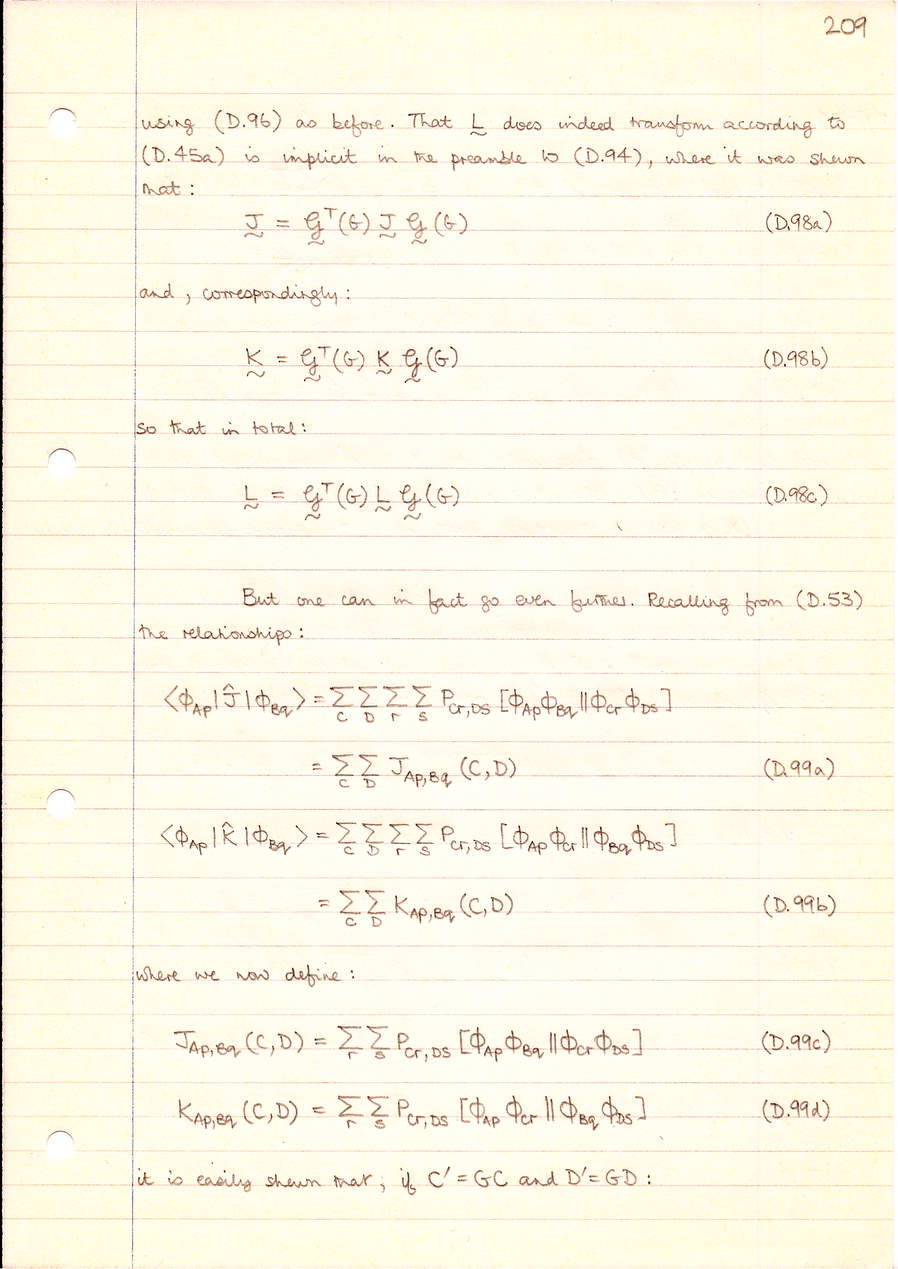 209
using (D.96) as before. That L̰ does indeed transform according to
(D.45a) is implicit in the preamble to (D.94), where it was shewn
that :
J̰ = 𝒢̰ᵀ(G) J̰ 𝒢̰(G) (D.98a)
and, correspondingly :
K̰ = 𝒢̰ᵀ(G) K̰ 𝒢̰(G) (D.98b)
so that in total :
L̰ = 𝒢̰ᵀ(G) L̰ 𝒢̰(G) (D.98c)
But one can in fact go even further. Recalling from (D.53)
the relationships :
⟨ϕ_Ap|Ĵ|ϕ_Bq⟩ = Σ_C Σ_D Σ_r Σ_s P_Cr,Ds [ϕ_Ap ϕ_Bq || ϕ_Cr ϕ_Ds]
= Σ_C Σ_D J_Ap,Bq (C,D) (D.99a)
⟨ϕ_Ap|K̂|ϕ_Bq⟩ = Σ_C Σ_D Σ_r Σ_s P_Cr,Ds [ϕ_Ap ϕ_Cr || ϕ_Bq ϕ_Ds]
= Σ_C Σ_D K_Ap,Bq (C,D) (D.99b)
where we now define :
J_Ap,Bq (C,D) = Σ_r Σ_s P_Cr,Ds [ϕ_Ap ϕ_Bq || ϕ_Cr ϕ_Ds] (D.99c)
K_Ap,Bq (C,D) = Σ_r Σ_s P_Cr,Ds [ϕ_Ap ϕ_Cr || ϕ_Bq ϕ_Ds] (D.99d)
it is easily shewn that, if C′ = GC and D′ = GD :